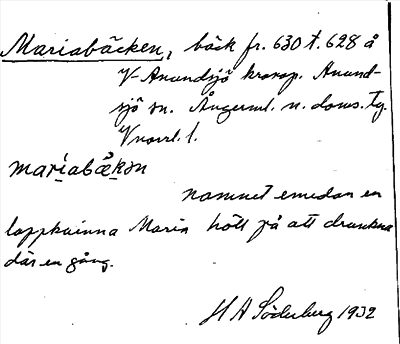 Mariabäcken, bäck fr. 630 t. 628 å
V Anundsjö kronop. Anund-
sjö sn. Ångerml. n. doms. tg.
Vnorrl. l.
mariabäkən
namnet emedan en
lappkvinna Maria hött på att drunkna
där en gång.
H A Söderberg 1932